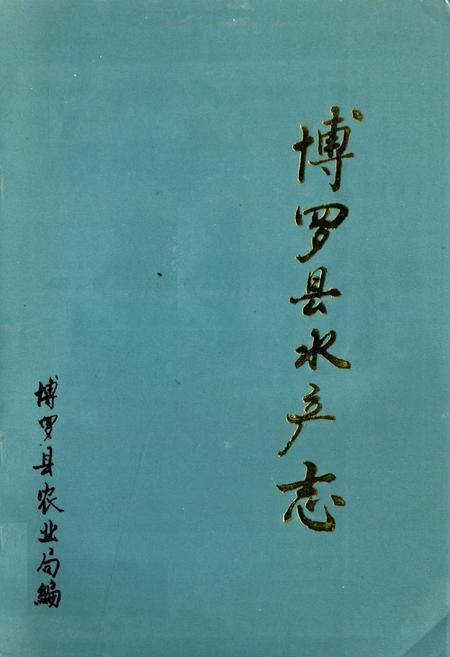 博罗县水产志
博罗县农业局编